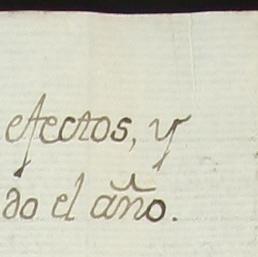 efectos, y
do el año.